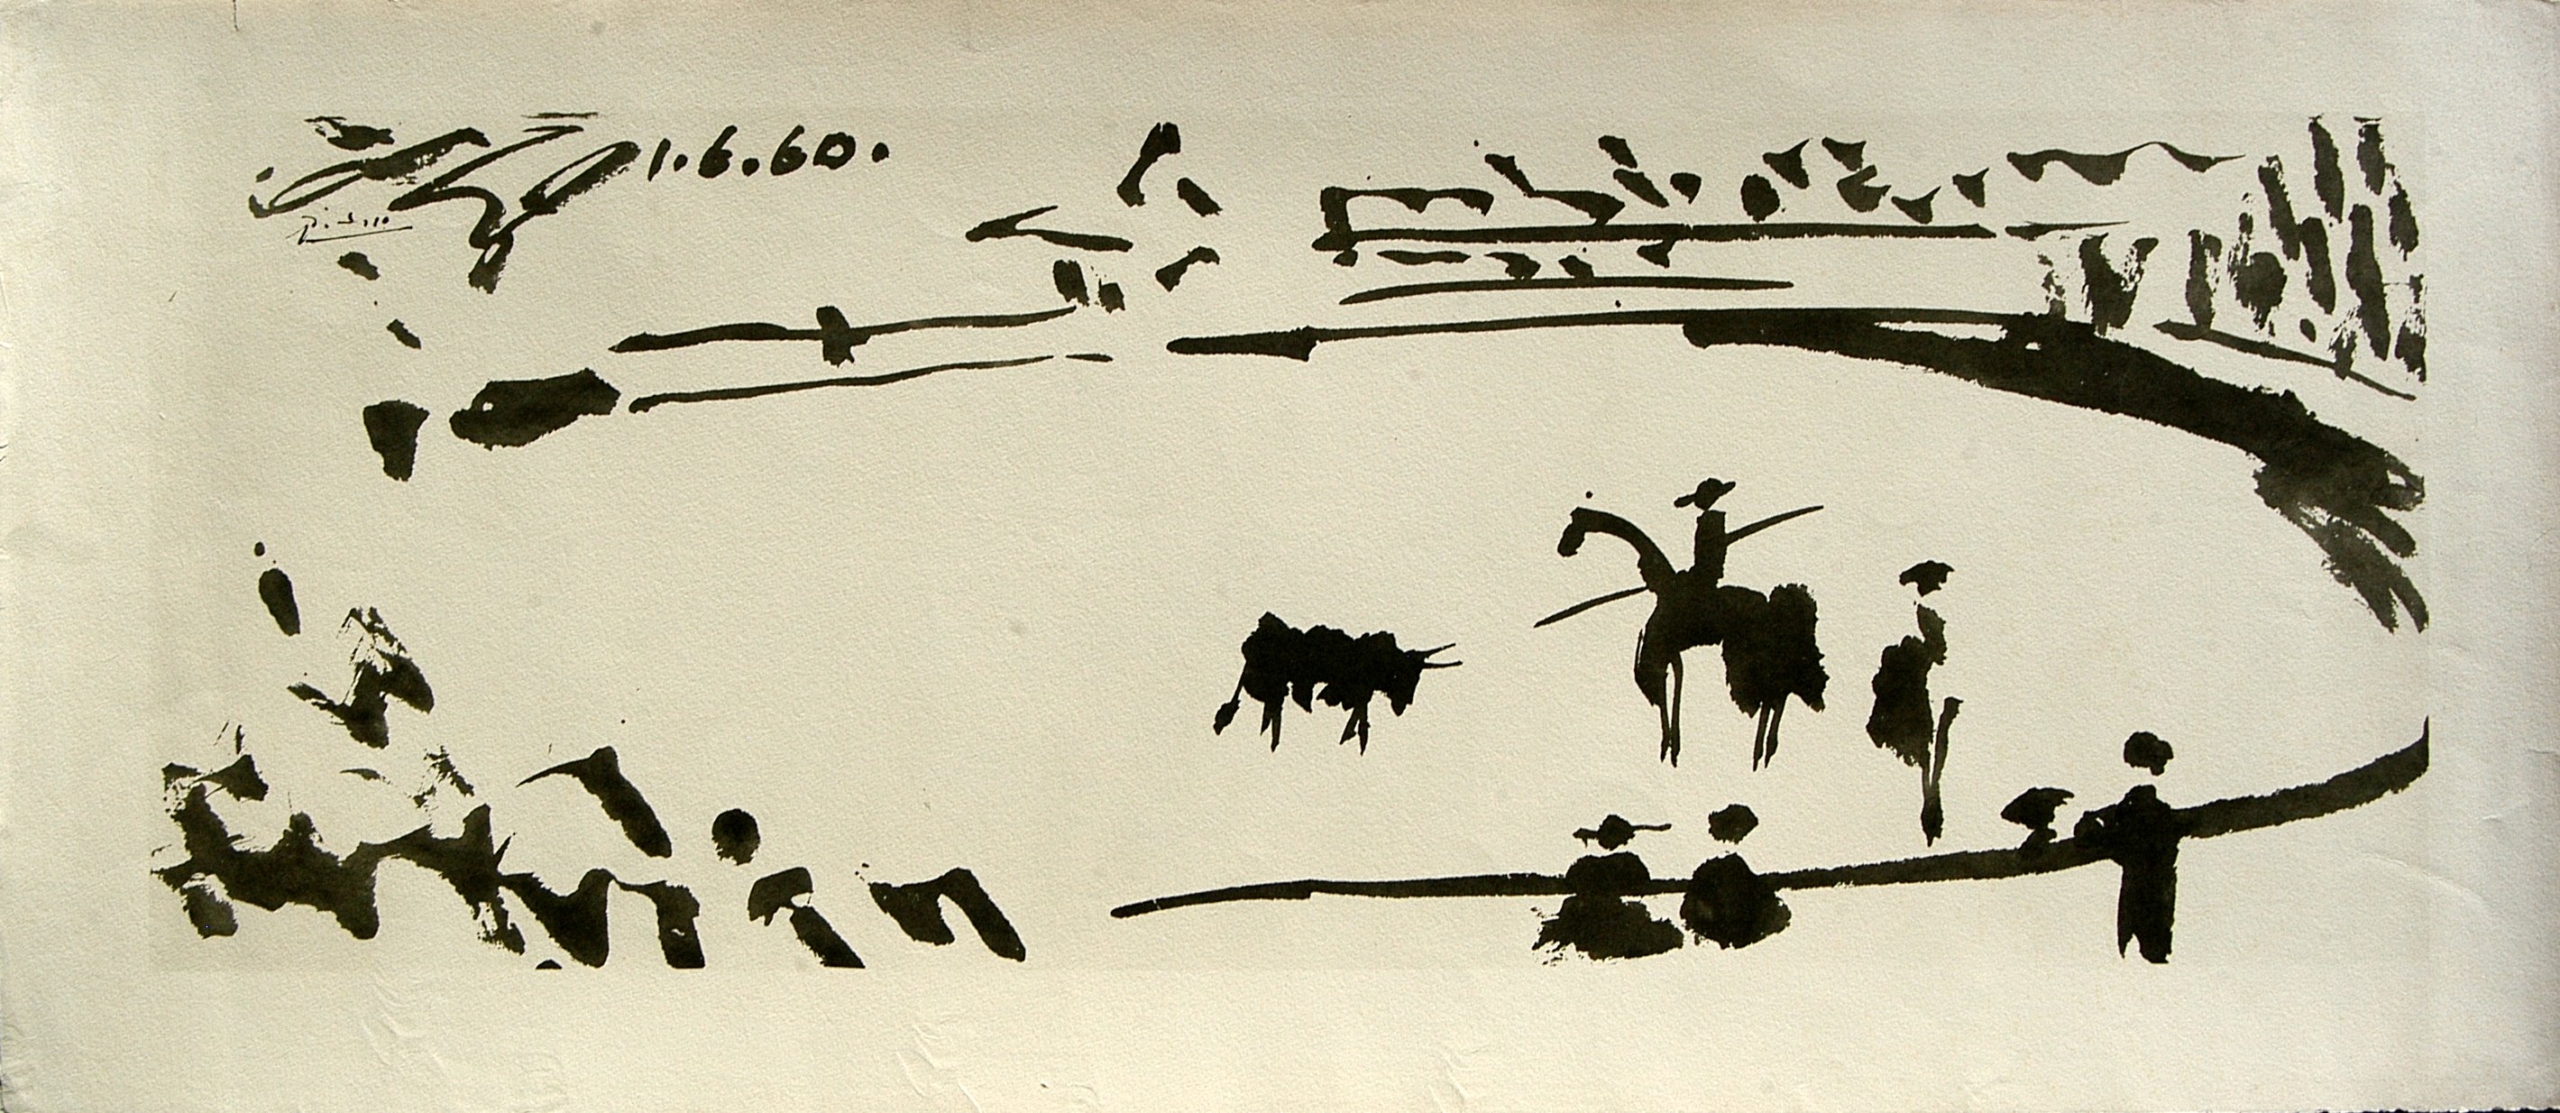 1.6.60.
Picasso